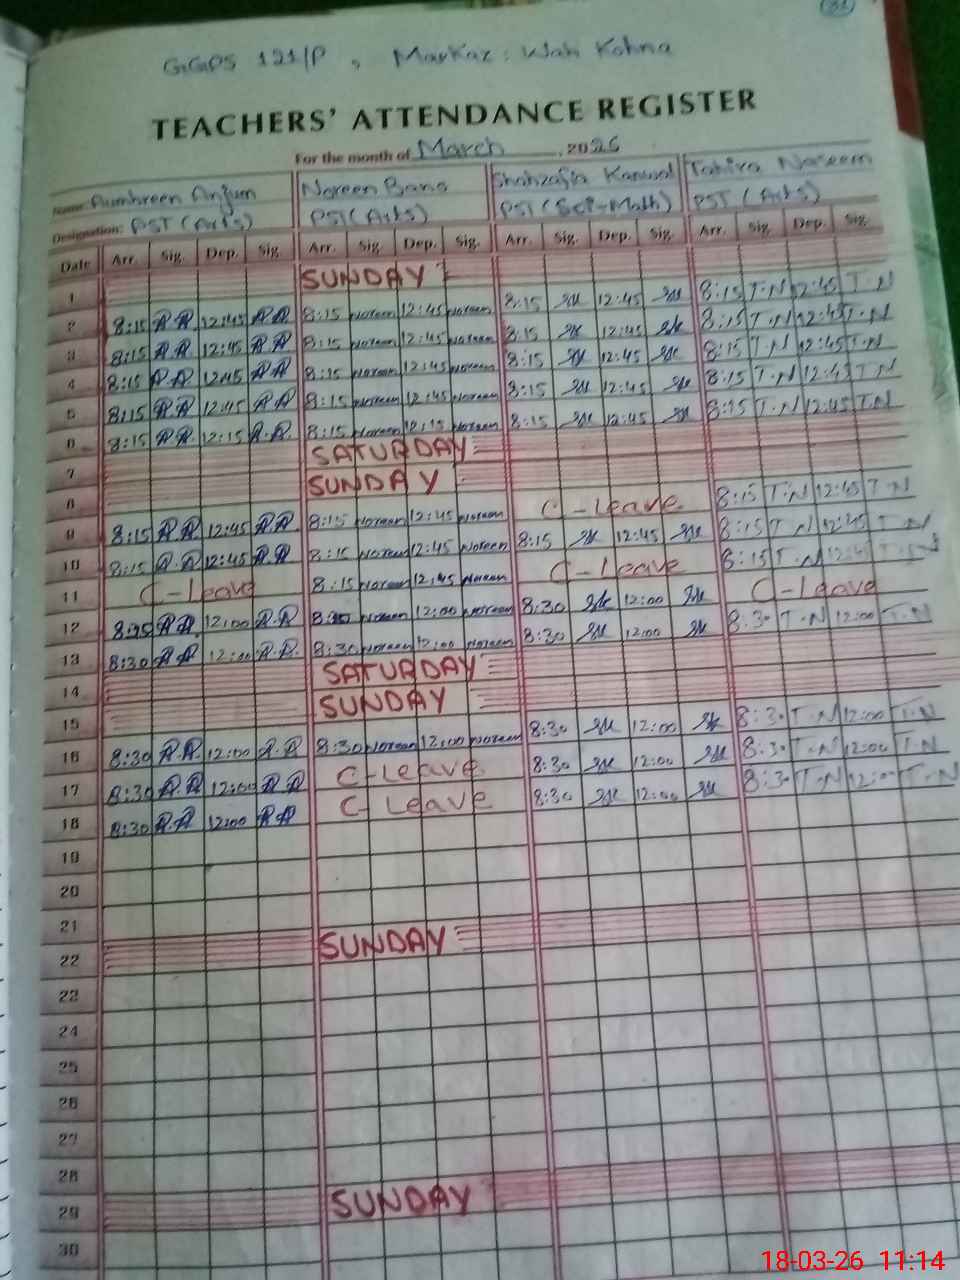 31
GGPS 121/P, Markaz: Wah Kohna
TEACHERS' ATTENDANCE REGISTER
For the month of March, 2026
Name: Aumbreen Anjum Noreen Bano Shahzadia Kanwal Tahira Naseem
Designation: PST (Arts) PST (Arts) PST (Sci-Math) PST (Arts)
Date Arr. Sig. Dep. Sig. Arr. Sig. Dep. Sig. Arr. Sig. Dep. Sig. Arr. Sig. Dep. Sig.
1 SUNDAY
2 8:15 A.A 12:45 A.A 8:15 Noreen 12:45 Noreen 8:15 12:45 8:15 T.N 12:45 T.N
3 8:15 A.A 12:45 A.A 8:15 Noreen 12:45 Noreen 8:15 12:45 8:15 T.N 12:45 T.N
4 8:15 A.A 12:45 A.A 8:15 Noreen 12:45 Noreen 8:15 12:45 8:15 T.N 12:45 T.N
5 8:15 A.A 12:45 A.A 8:15 Noreen 12:45 Noreen 8:15 12:45 8:15 T.N 12:45 T.N
6 8:15 A.A 12:15 A.A. 8:15 Noreen 12:15 Noreen 8:15 12:45 8:15 T.N 12:45 T.N
7 SATURDAY
8 SUNDAY
9 8:15 A.A 12:45 A.A 8:15 Noreen 12:45 Noreen C-Leave 8:15 T.N 12:45 T.N
10 8:15 A.A 12:45 A.A 8:15 Noreen 12:45 Noreen 8:15 12:45 8:15 T.N 12:45 T.N
11 C-Leave 8:15 Noreen 12:45 Noreen C-Leave 8:15 T.N 12:45 T.N
12 8:30 A.A. 12:00 A.A 8:30 Noreen 12:00 Noreen 8:30 12:00 C-Leave
13 8:30 A.A 12:00 A.A. 8:30 Noreen 12:00 Noreen 8:30 12:00 8:30 T.N 12:00 T.N
14 SATURDAY
15 SUNDAY
16 8:30 A.A. 12:00 A.A 8:30 Noreen 12:00 Noreen 8:30 12:00 8:30 T.N 12:00 T.N
17 8:30 A.A 12:00 A.A C-Leave 8:30 12:00 8:30 T.N 12:00 T.N
18 8:30 A.A 12:00 A.A C-Leave 8:30 12:00 8:30 T.N 12:00 T.N
19
20
21
22 SUNDAY
23
24
25
26
27
28
29 SUNDAY
30
18-03-26 11:14